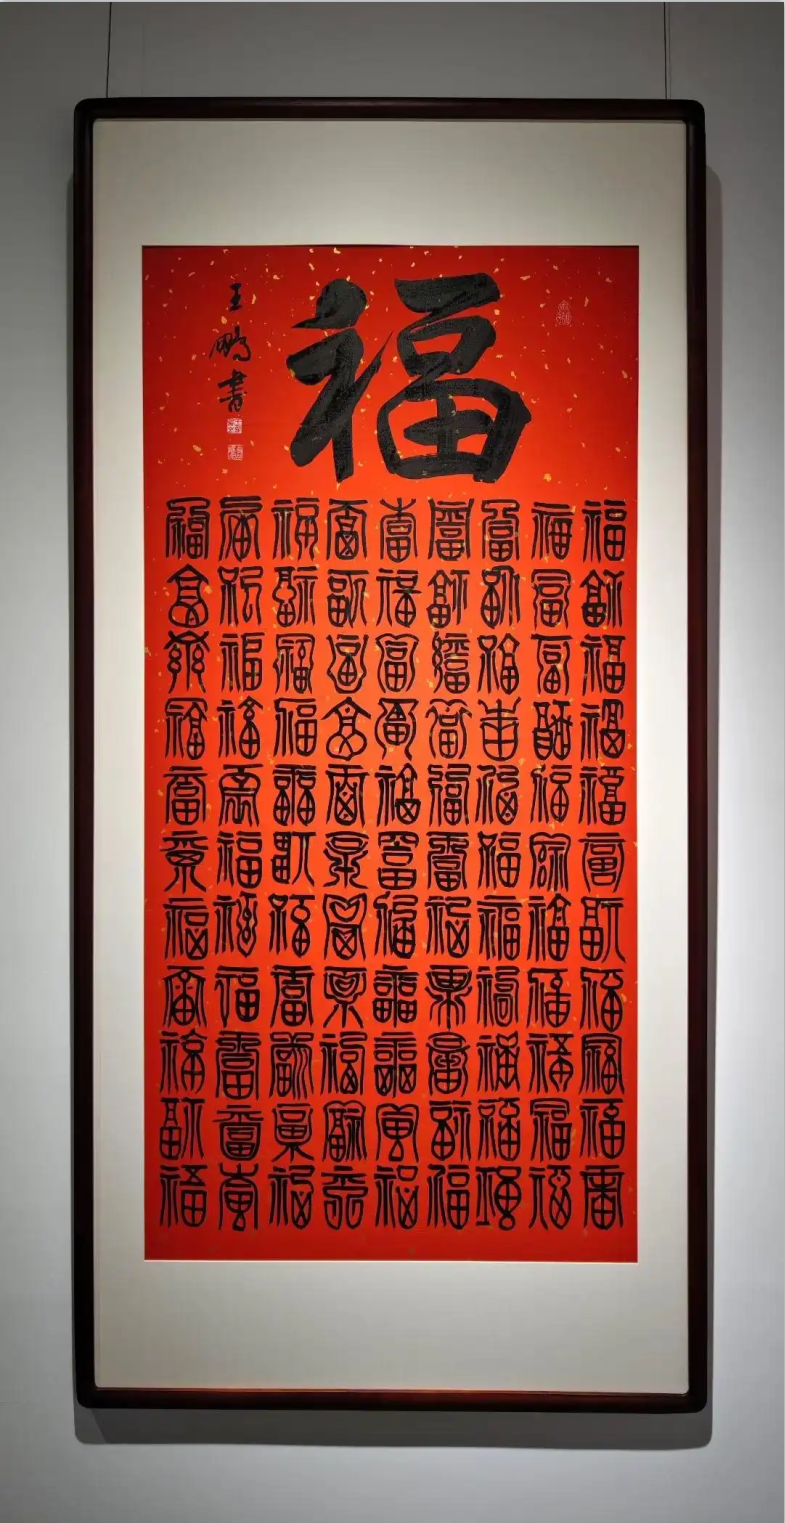 福
福福福福福福福福福福福
福福福福福福福福福福福
福福福福福福福福福福福
福福福福福福福福福福福
福福福福福福福福福福福
福福福福福福福福福福福
福福福福福福福福福福福
福福福福福福福福福福福
福福福福福福福福福福福
王鵬書